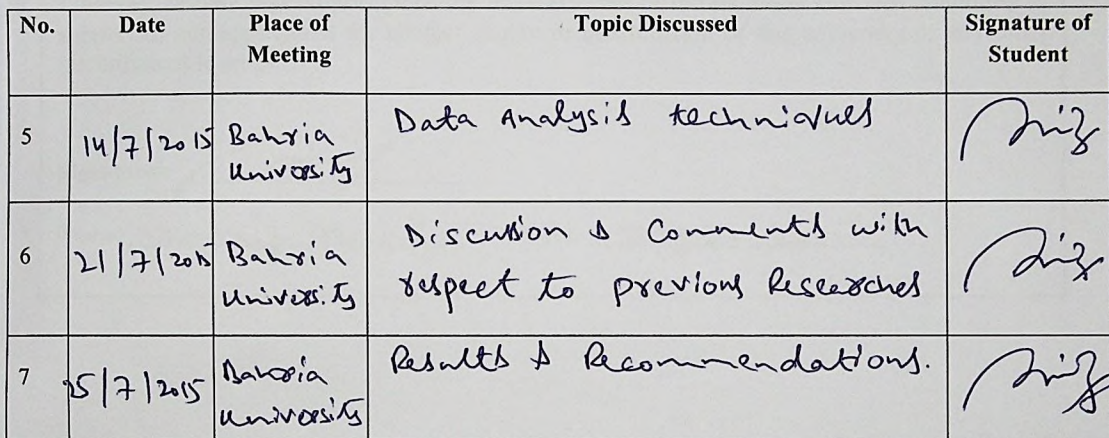 No. Date Place of Meeting Topic Discussed Signature of Student
5 14/7/2015 Bahria University Data Analysis techniques
6 21/7/2015 Bahria University Discussion & Comments with
respect to previous Researches
7 25/7/2015 Bahria University Results & Recommendations.